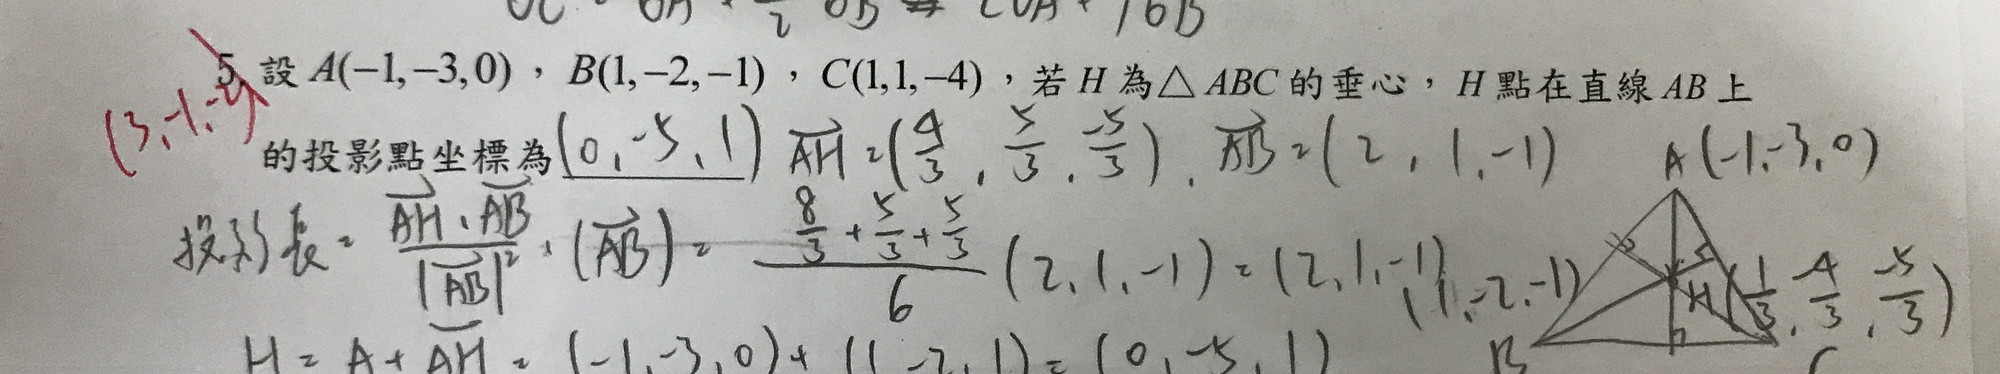 5. 設 A(−1,−3,0)，B(1,−2,−1)，C(1,1,−4)，若 H 為△ABC 的垂心，H 點在直線 AB 上
的投影點坐標為 (0,-5,1) AH = (4/3, 5/3, -5/3), AB = (2, 1, -1) A(-1,-3,0)
投影長 = AH·AB / |AB|² · (AB) = (8/3 + 5/3 + 5/3) / 6 (2, 1, -1) = (2, 1, -1) (1,-2,-1) H(1/3, -4/3, -5/3)
H = A + AH = (-1,-3,0) + (1,-2,1) = (0,-5,1) B C